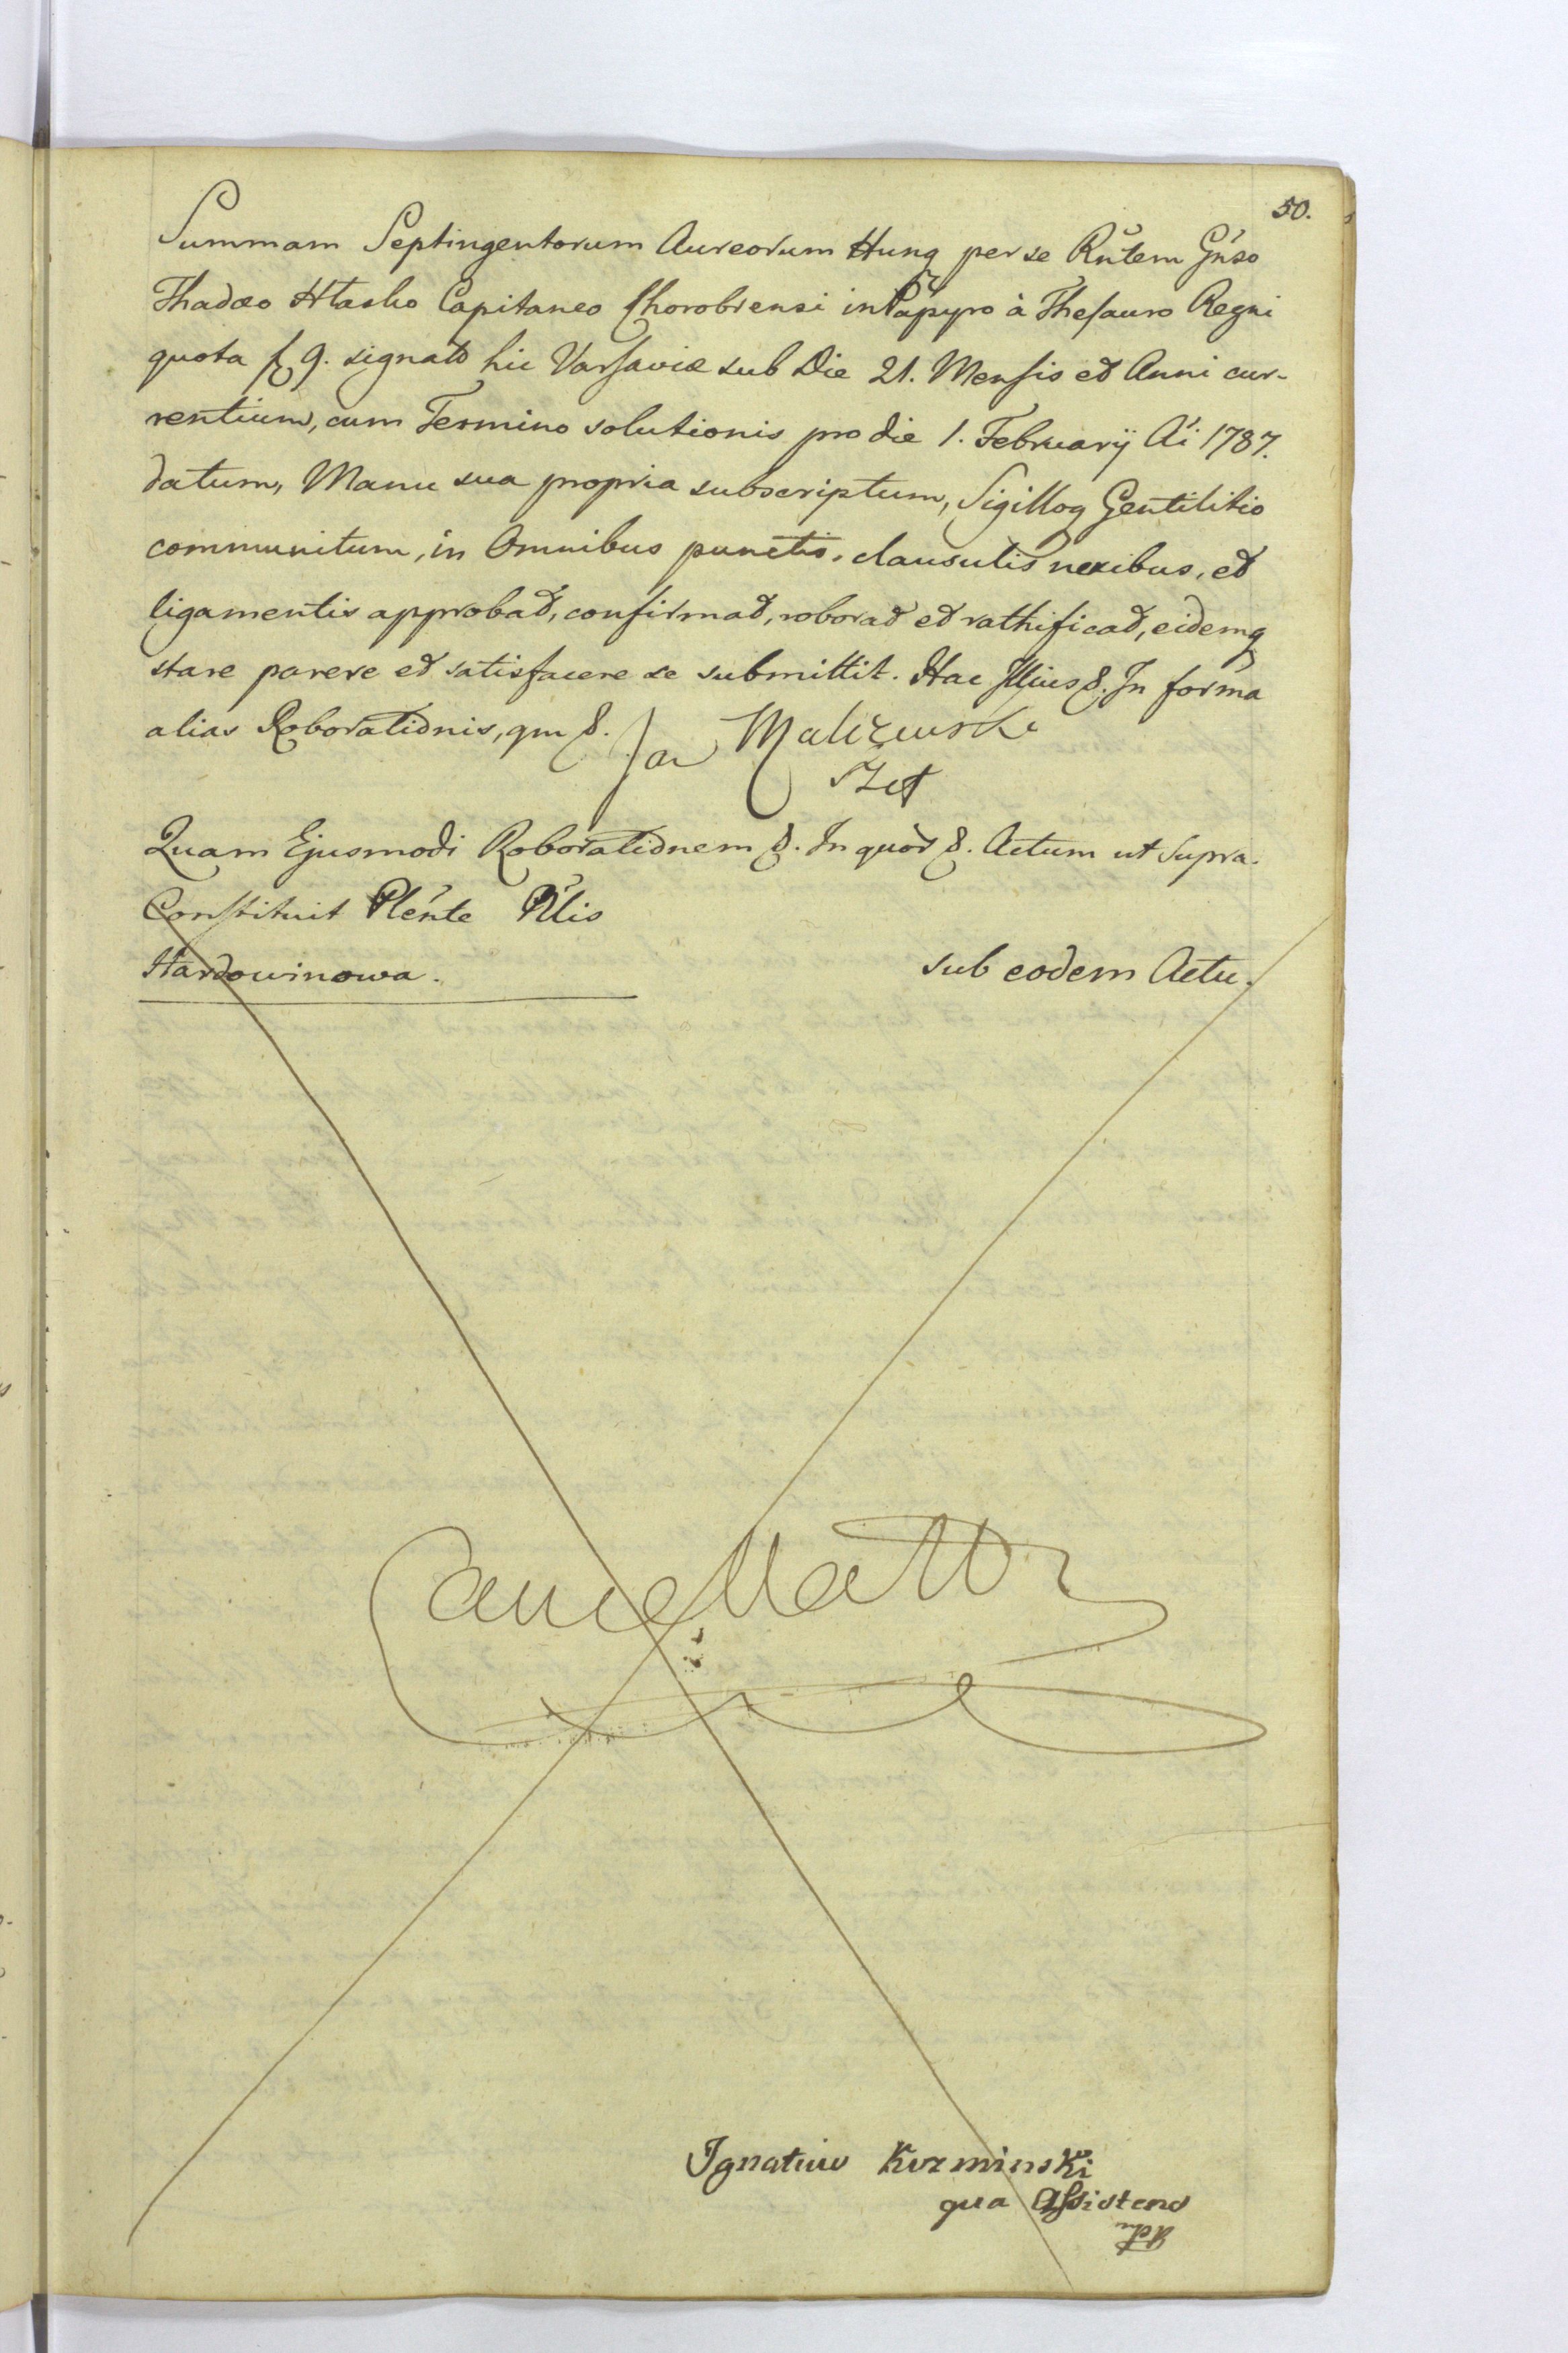 50.
Summam Septingentorum Aureorum Hung per se Rntem Gnso
Thadæo Hlasko Capitaneo Chorobrensi in Papyro à Thesauro Regni
quota f 9. signato hic Varsaviæ sub Die 21. Mensis et Anni cur-
rentium, cum Termino solutionis pro die 1. Februarij Ai 1787.
datum, Manu sua propria subscriptum, Sigilloq Gentilitio
communitum, in Omnibus punctis, clausulis nexibus, et
ligamentis approbat, confirmat, roborat et rathificat, eidemq
stare parere et satisfacere se submittit. Hac Illius &. In forma
alias Roborationis, qm &. Jan Maliszewski
Quam Ejusmodi Roborationem &. In quor &. Actum ut Supra.
Constituit Plente Nlis
Hardowinowa. sub eodem Actu.
Cancellattr
Ignatius Kuzminski
qua Assistens